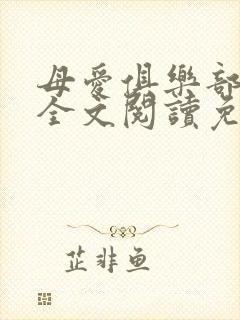 母愛俱樂部
全文閱讀免
芷非魚